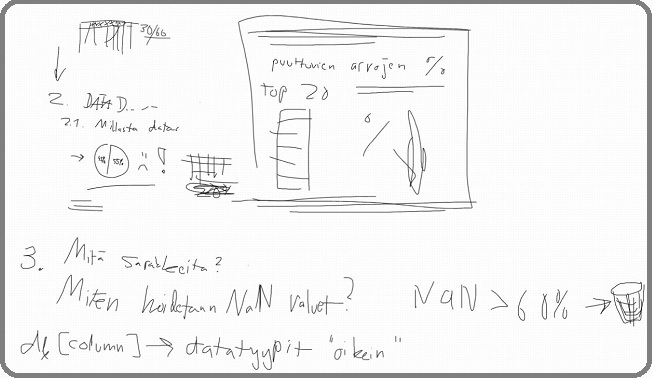 30/60
2. DATA D...
2.1. Millasta dataa
puuttuvien arvojen %
Top 20
%
3. Mitä sarakkeita?
Miten hoidetaan NaN valuet?
NaN > 60% →
df[column] → datatyypit "oikein"